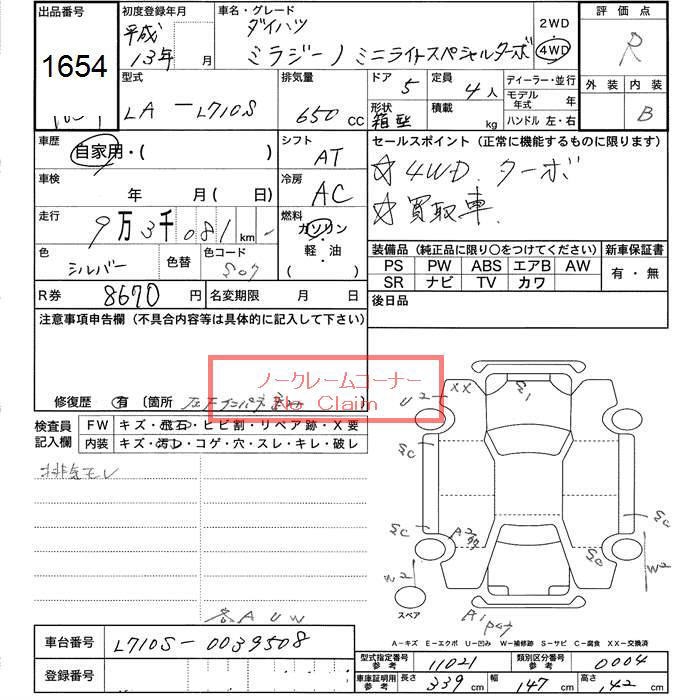 出品番号 初度登録年月 車名・グレード 2WD 評価点
1654 平成 13年 月 ダイハツ ミラジーノ ミニライトスペシャルターボ 4WD R
型式 排気量 ドア 定員 ディーラー・並行 外装 内装
LA-L710S 650 CC 5 4人 モデル年式 年 B
形状 箱型 積載 kg ハンドル 左・右
車歴 自家用・( ) シフト AT セールスポイント(正常に機能するものに限ります)
車検 年 月(日) 冷房 AC ☆4WD. ターボ
☆買取車.
走行 9万3千081km 燃料 ガソリン・軽油 ( )
色 シルバー 色替 色コード S07
装備品(純正品に限り○をつけてください) 新車保証書
PS PW ABS エアB AW 有・無
SR ナビ TV カワ
R券 8670円 名変期限 月 日 後日品
注意事項申告欄(不具合内容等は具体的に記入して下さい)
ノークレームコーナー
No Claim
修復歴 有 〔箇所
検査員記入欄 FW キズ・飛石・ヒビ割・リペア跡・X要
内装 キズ・汚レ・コゲ・穴・スレ・キレ・破レ
排気モレ
XX
U2
S1
SC
SC
SC
A2
W2
W2
A1
スペア
各AUW
A-キズ E-エクボ U-凹み W-補修跡 S-サビ C-腐食 XX-交換済
車台番号 L710S-0039508
型式指定番号 参考 11021 類別区分番号 参考 0004
登録番号
車庫証明用 参考 長さ 339cm 幅 147cm 高さ 142cm